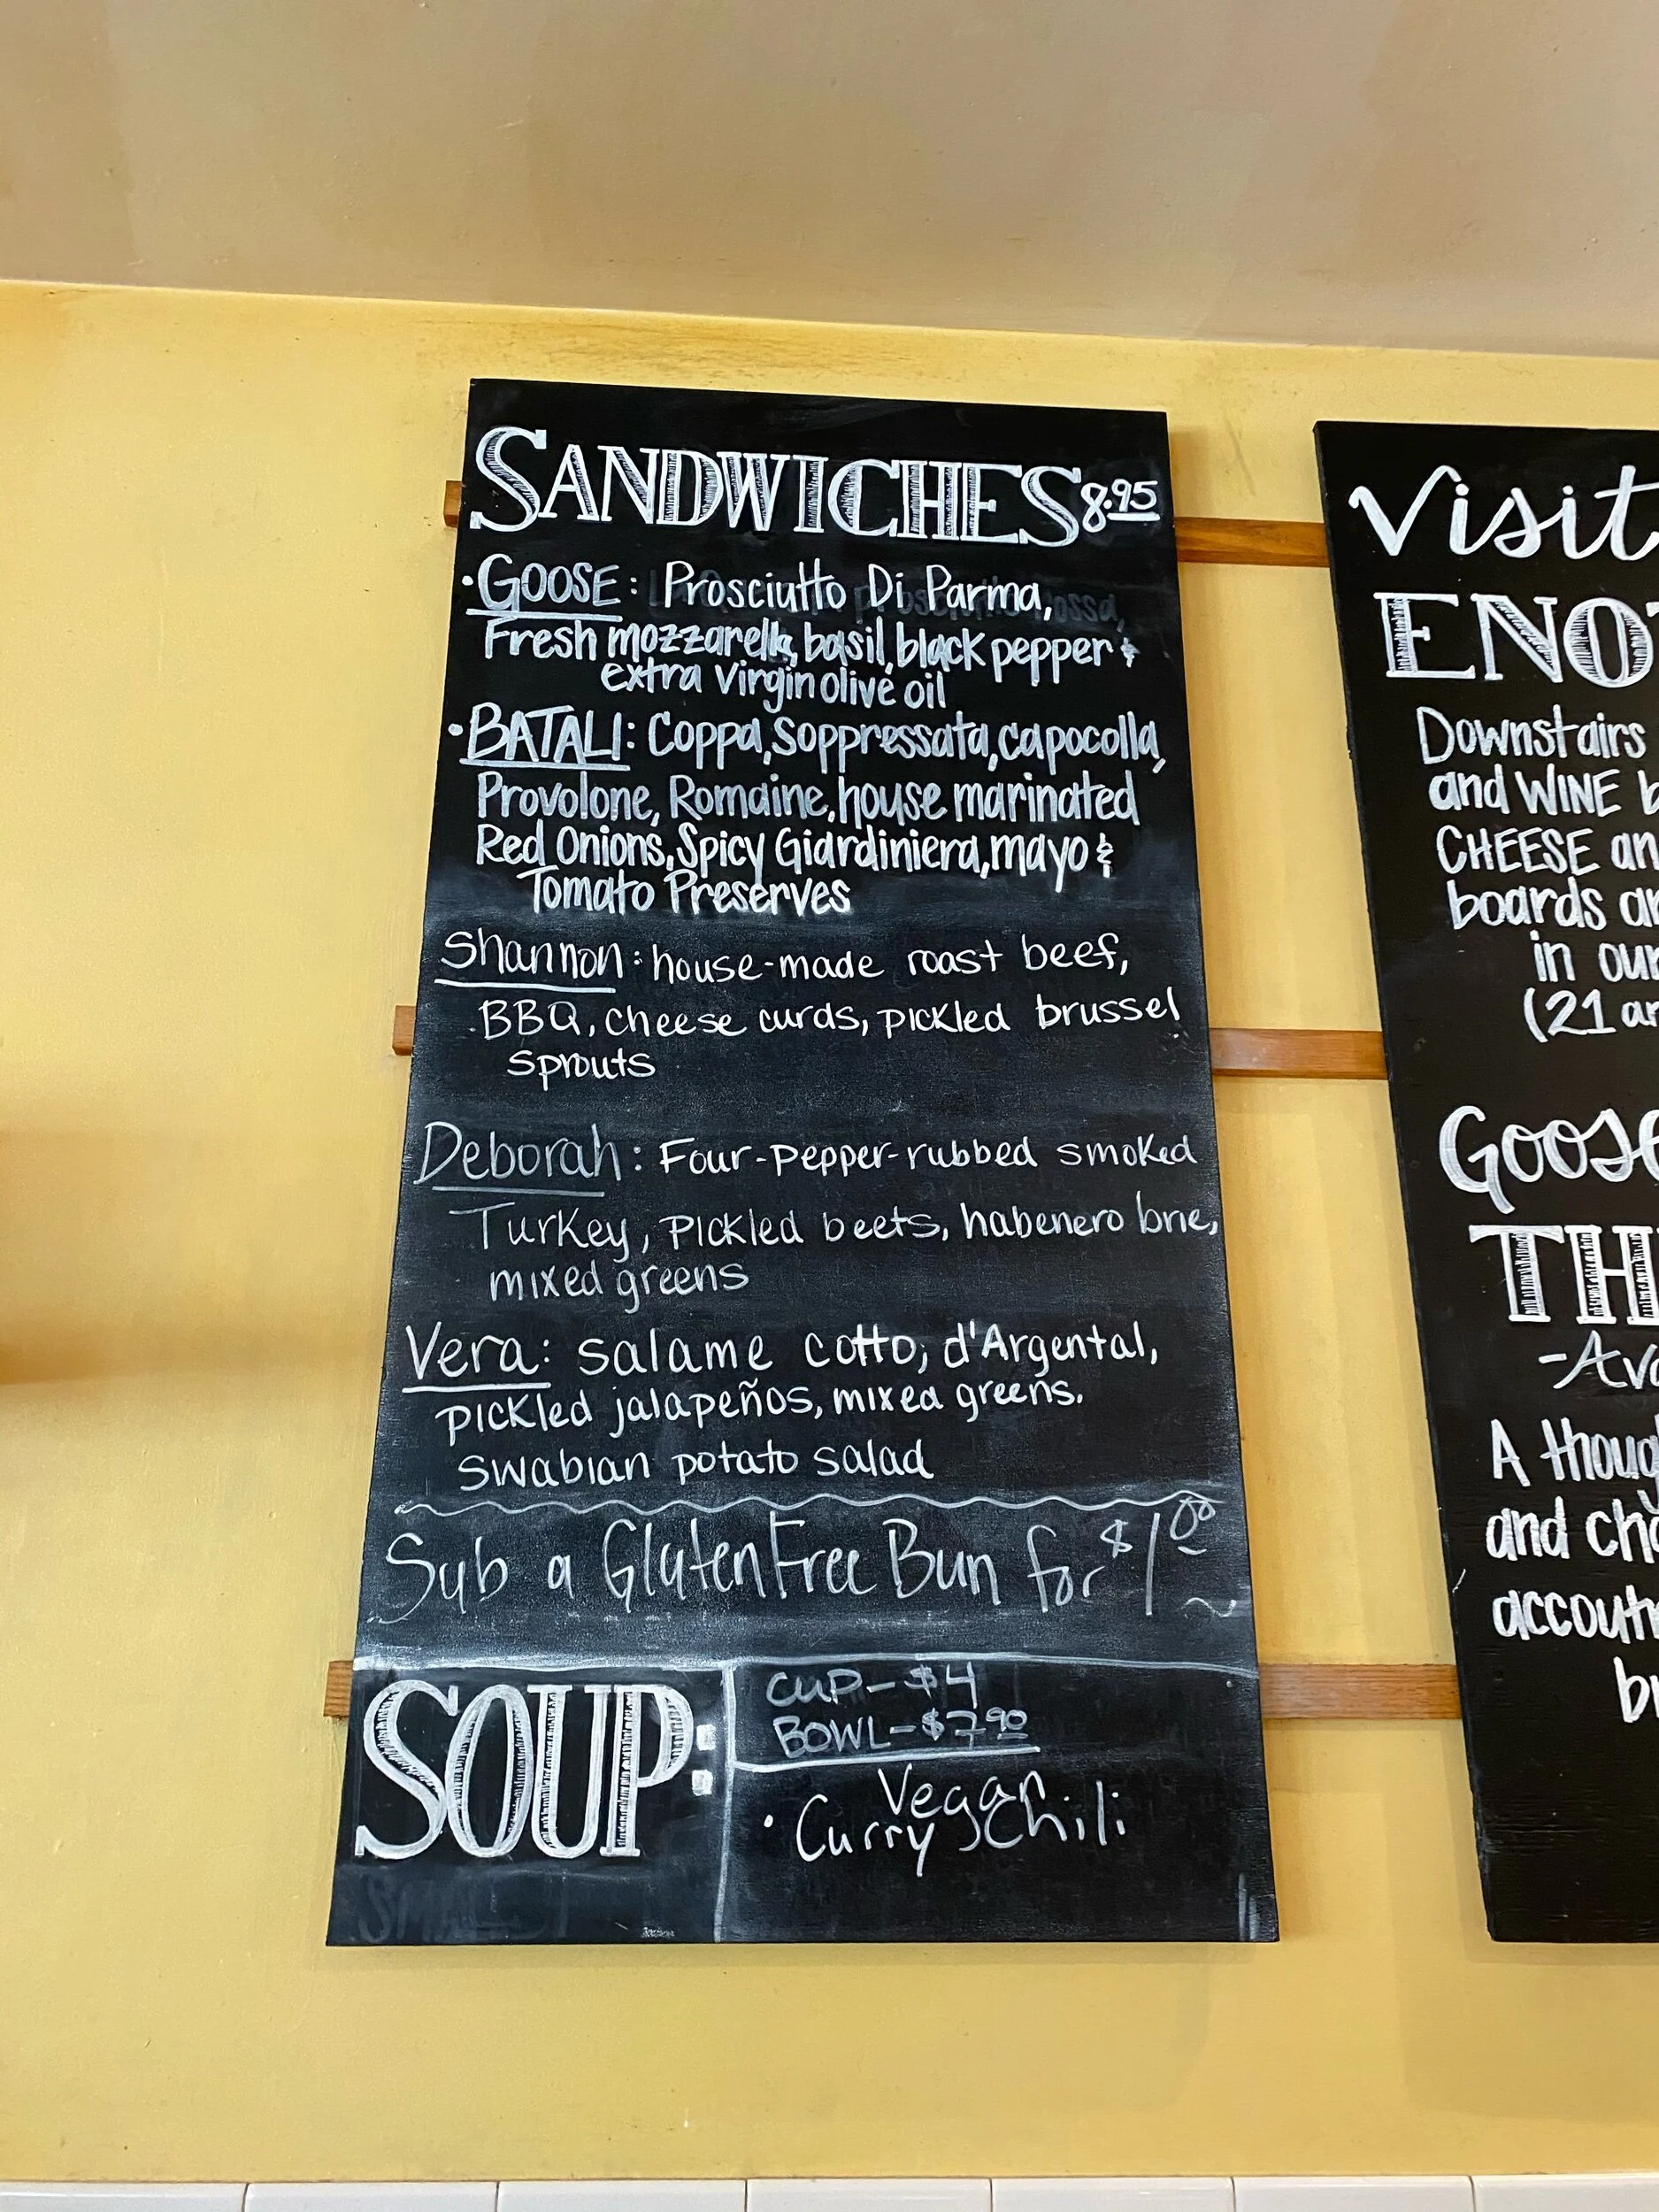 SANDWICHES 8.95
• GOOSE: Prosciutto Di Parma,
Fresh mozzarella, basil, black pepper &
extra virgin olive oil
• BATALI: Coppa, Soppressata, capocolla,
Provolone, Romaine, house marinated
Red Onions, Spicy Giardiniera, mayo &
Tomato Preserves
Shannon: house-made roast beef,
BBQ, cheese curds, pickled brussel
sprouts
Deborah: Four-pepper-rubbed smoked
Turkey, pickled beets, habenero brie,
mixed greens
Vera: salame cotto, d'Argental,
pickled jalapeños, mixed greens.
swabian potato salad
Sub a Gluten Free Bun for $1.00
SOUP:
CUP - $4
BOWL - $7.90
Vegan
• Curry Chili
Visit
ENO
Downstairs
and WINE b
CHEESE an
boards ar
in our
(21 an
Goose
TH
-Ava
A thoug
and cho
accoutr
br